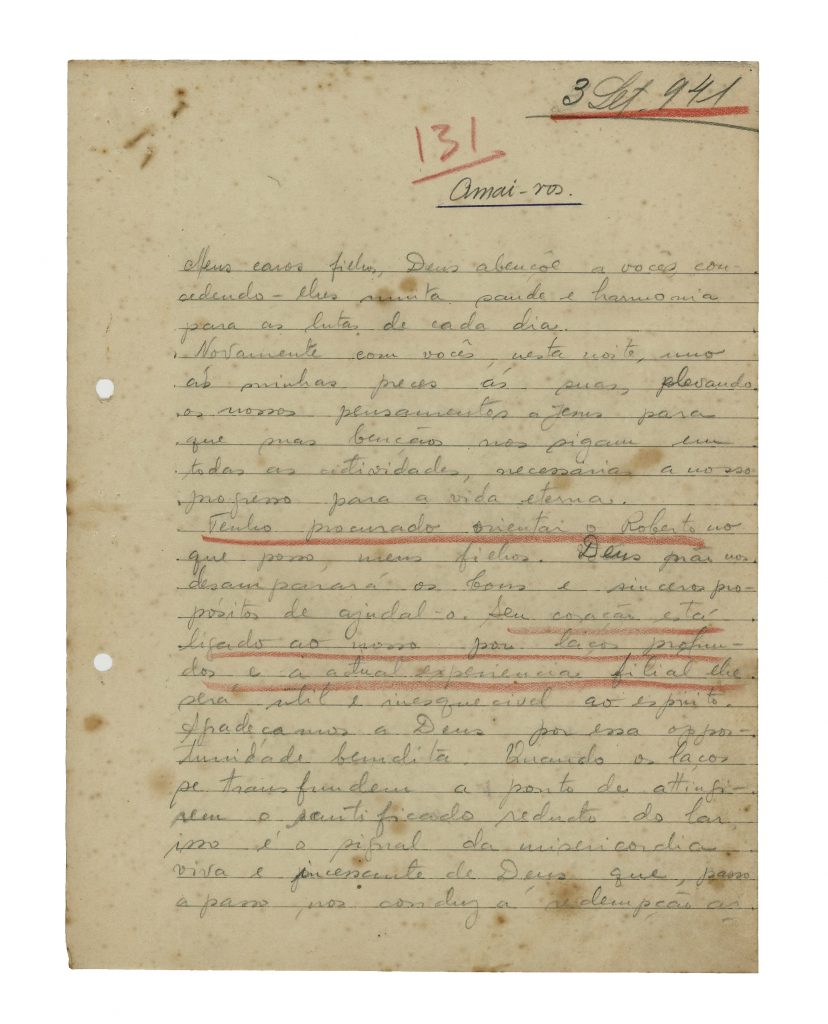 3 Set. 941
131
Amai-vos.
Meus caros filhos, Deus abençôe a vocês, con-
cedendo-lhes muita saude e harmonia
para as lutas de cada dia.
Novamente com vocês, nesta noite, uno
as minhas preces ás suas, elevando
os nossos pensamentos a Jesus para
que suas bençãos nos sigam em
todas as actividades, necessarias a nosso
progresso para a vida eterna.
Tenho procurado orientar o Roberto no
que posso, meus filhos. Deus não nos
desamparará os bons e sinceros pro-
pósitos de ajudal-o. Seu coração está
ligado ao nosso por laços profun-
dos e a actual experiencia filial lhe
será util e inesquecivel ao espirito.
Agradeçamos a Deus por essa oppor-
tunidade bemdita. Quando os laços
se transfundem a ponto de attingi-
rem o santificado reducto do lar,
isso é o signal da misericordia
viva e incessante de Deus que, passo
a passo, nos conduz á redempção as